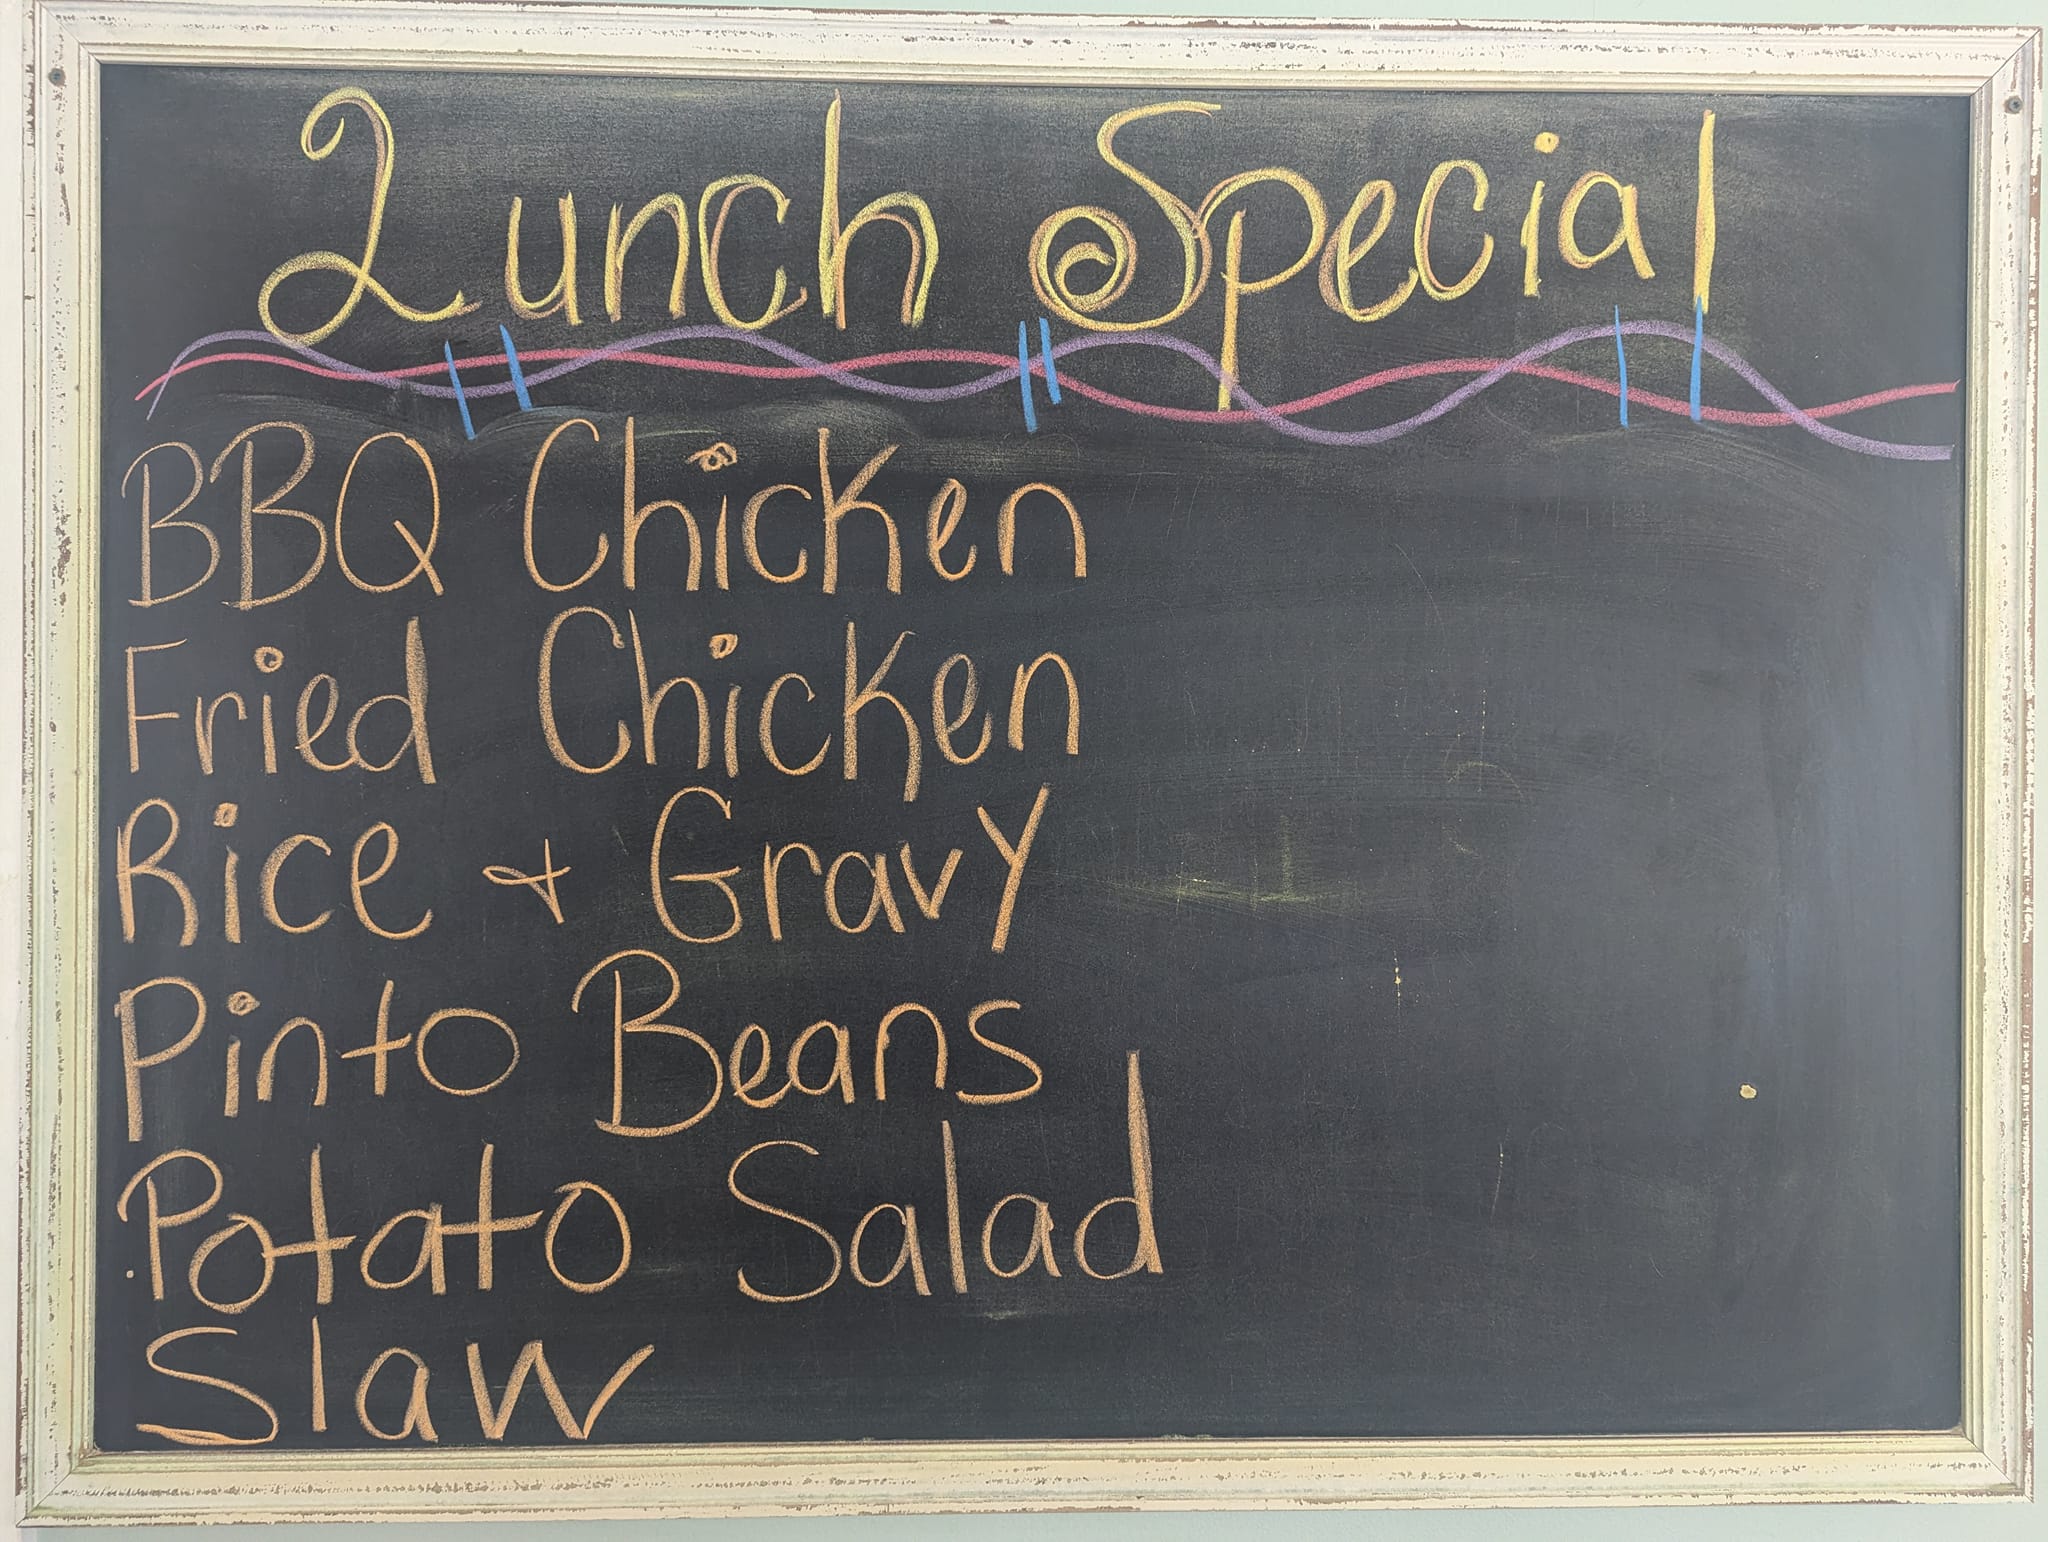 Lunch Special
BBQ Chicken
Fried Chicken
Rice & Gravy
Pinto Beans
Potato Salad
Slaw